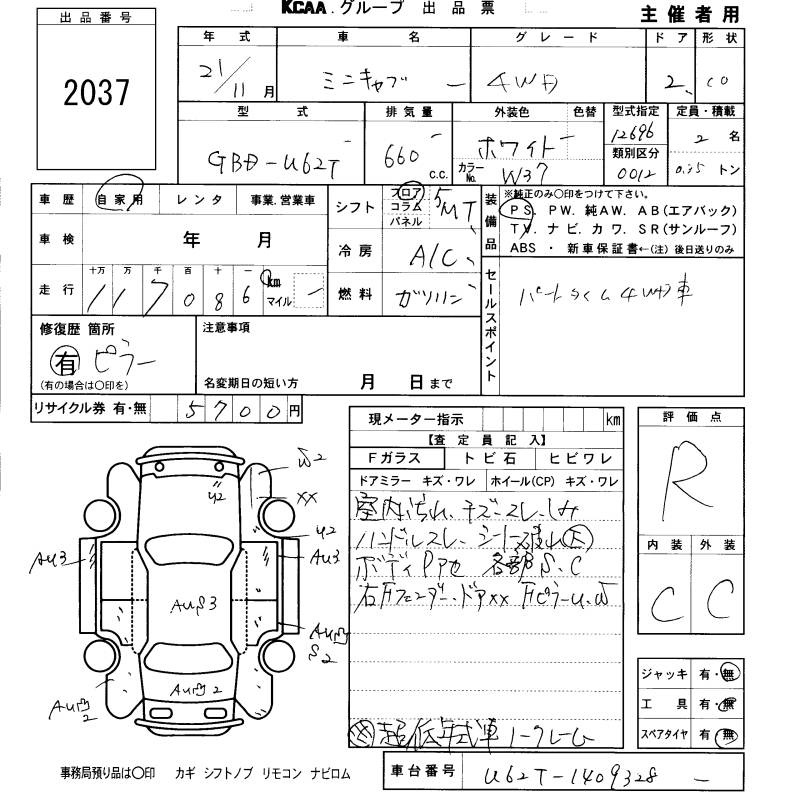 KCAA.グループ 出品票
主催者用
出品番号
2037
年式 車名 グレード ドア 形状
21/11月 ミニキャブ 4WD 2 CO
型式 排気量 外装色 色替 型式指定 定員・積載
GBD-U62T 660 C.C. ホワイト カラーNo. W37 12696 2名
類別区分
0012 0.35トン
車歴 自家用 レンタ 事業.営業車
シフト フロア コラム パネル 5 MT
装備品
※純正のみ〇印をつけて下さい。
PS. PW. 純AW. AB(エアバック)
TV. ナビ. カワ. SR(サンルーフ)
ABS ・ 新車保証書←(注) 後日送りのみ
車検 年 月
冷房 A/C
走行 十万 万 千 百 十 一 km マイル
117086
燃料 ガソリン
セールスポイント
パートタイム4WD車
修復歴 箇所
有 ピラー
(有の場合は〇印を)
注意事項
名変期日の短い方 月 日まで
リサイクル券 有・無 5700円
現メーター指示 km
【査定員記入】
Fガラス トビ石 ヒビワレ
ドアミラー キズ・ワレ ホイール(CP) キズ・ワレ
室内汚れ、キズ、スレ、しみ
ハンドルスレ、シート破れ
ボディPアセ 各部S、C
右Fフェンダー、ドアXX FピラーU、W
超低年式車 ノークレーム
評価点
R
内装 外装
C C
W2
XX
U2
U2
AU3
AU3
AUS3
AU凹
S2
AU凹2
AU凹2
ジャッキ 有・無
工具 有・無
スペアタイヤ 有・無
事務局預り品は〇印 カギ シフトノブ リモコン ナビロム
車台番号 U62T-1409328